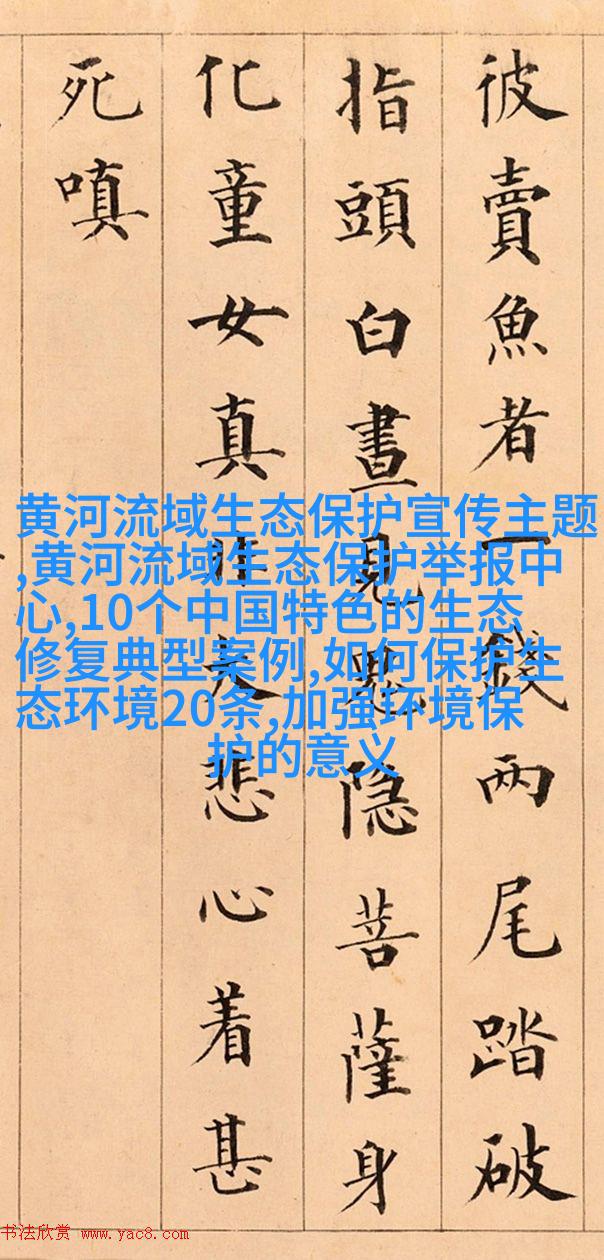 彼賣魚者一錢两尾踏破
指頭白晝見鬼隐菩薩身
化童女真悲心着甚
死嗔
黄河流域生态保护宣传主题
,黄河流域生态保护举报中
心,10个中国特色的生态
修复典型案例,如何保护生
态环境20条,加强环境保
护的意义
书法欣赏 www.yac8.com